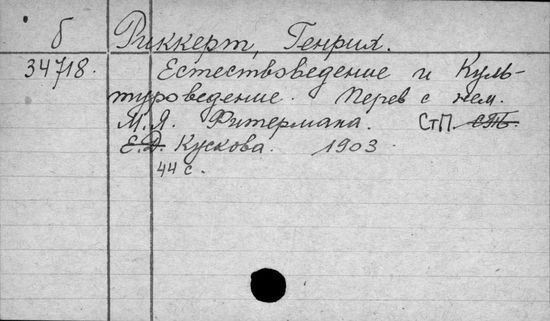 б Риккерт, Генрих.
34718. Естествоведение и Куль-
туроведение. Перев с нем.
М. Я. Фитермана. СтП. СПБ.
Е.Д. Кускова. 1903.
44 с.